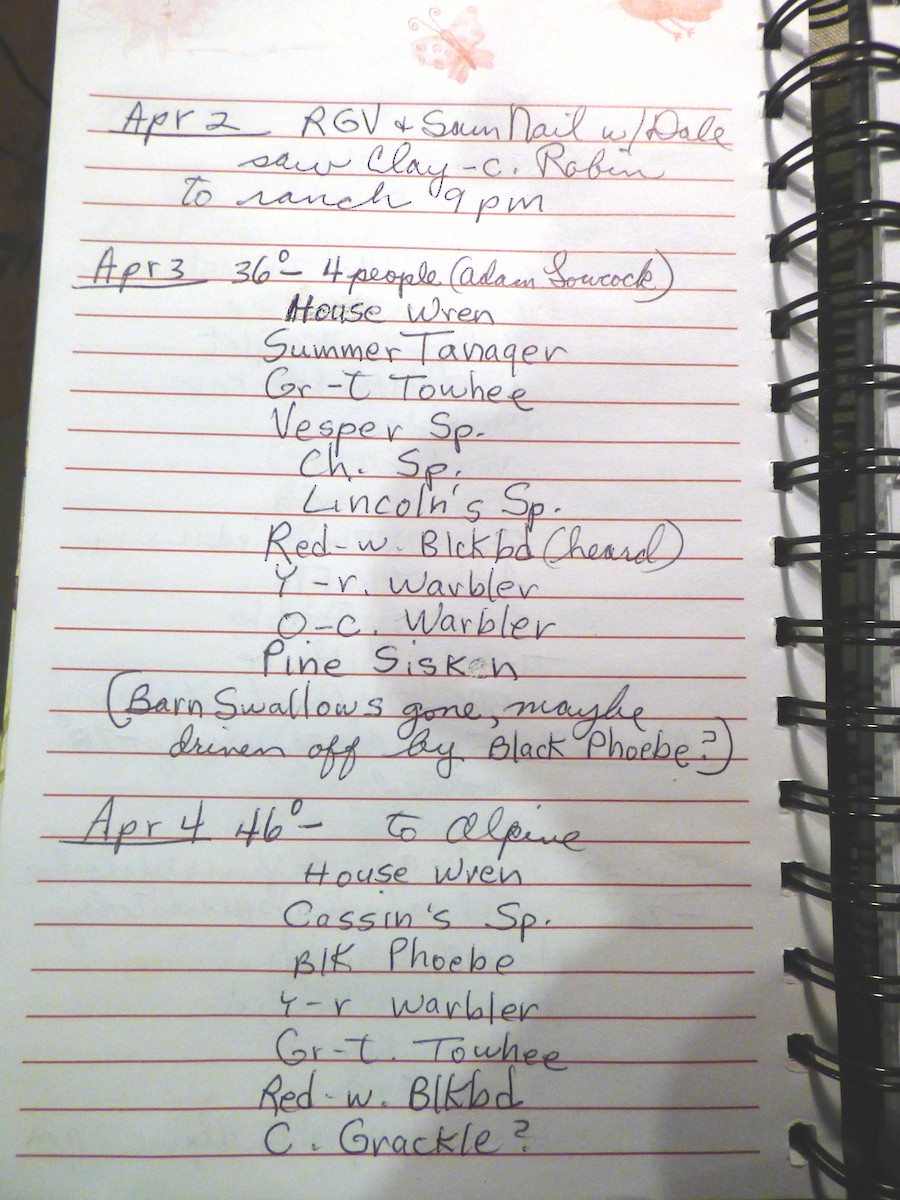 Apr 2 RGV & Sam Nail w/Dale
saw Clay-c. Robin
to ranch 9 pm
Apr 3 36°- 4 people (Adam
House Wren
Summer Tanager
Gr-t Towhee
Vesper Sp.
Ch. Sp.
Lincoln's Sp.
Red-w. Blckbd (heard)
Y-r. Warbler
O-c. Warbler
Pine Siskin
(Barn Swallows gone, maybe
driven off by Black Phoebe?)
Apr 4 46°- to Alpine
House Wren
Cassin's Sp.
Blk Phoebe
Y-r Warbler
Gr-t. Towhee
Red-w. Blkbd
C. Grackle?